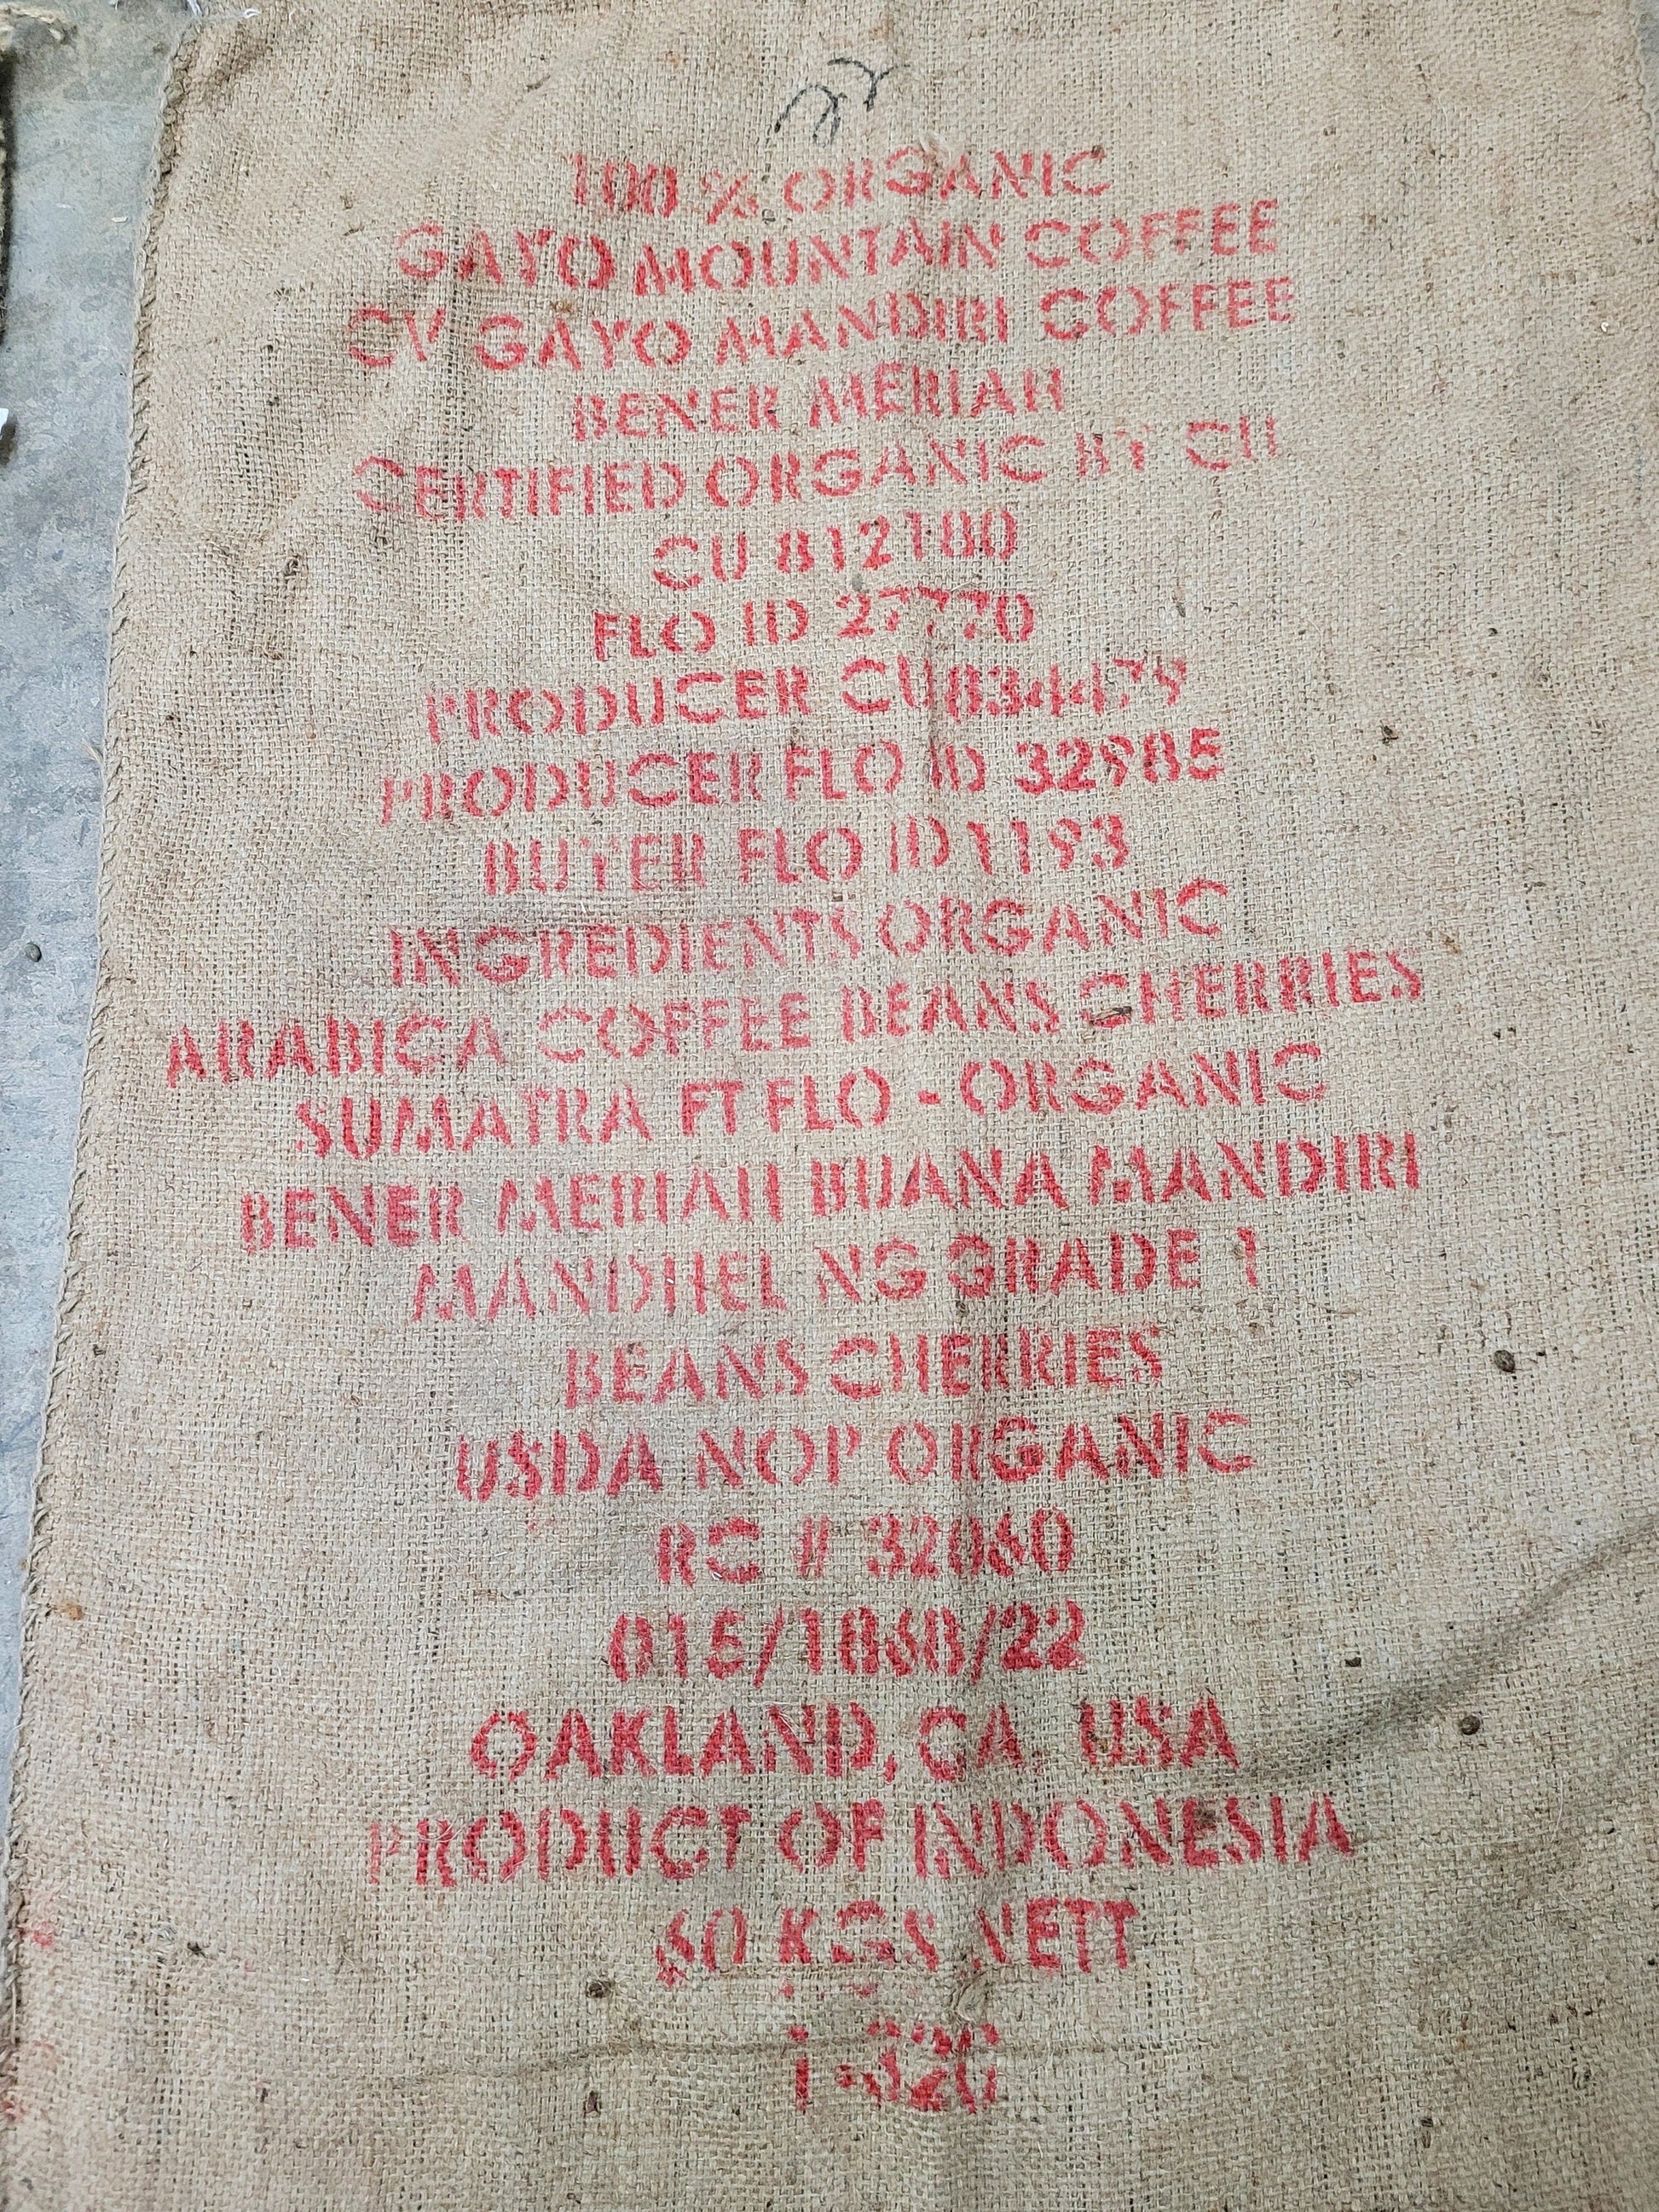 100 % ORGANIC
GAYO MOUNTAIN COFFEE
CV GAYO MANDIRI COFFEE
BENER MERIAH
CERTIFIED ORGANIC BY CU
CU 812180
FLO ID 27770
PRODUCER CU834479
PRODUCER FLO ID 32985
BUYER FLO ID 1193
INGREDIENTS ORGANIC
ARABICA COFFEE BEANS CHERRIES
SUMATRA FT FLO - ORGANIC
BENER MERIAH BUANA MANDIRI
MANDHEL NG GRADE 1
BEANS CHERRIES
USDA NOP ORGANIC
RC # 32060
015/1868/22
OAKLAND, CA. USA
PRODUCT OF INDONESIA
60 KGS NETT
1-320